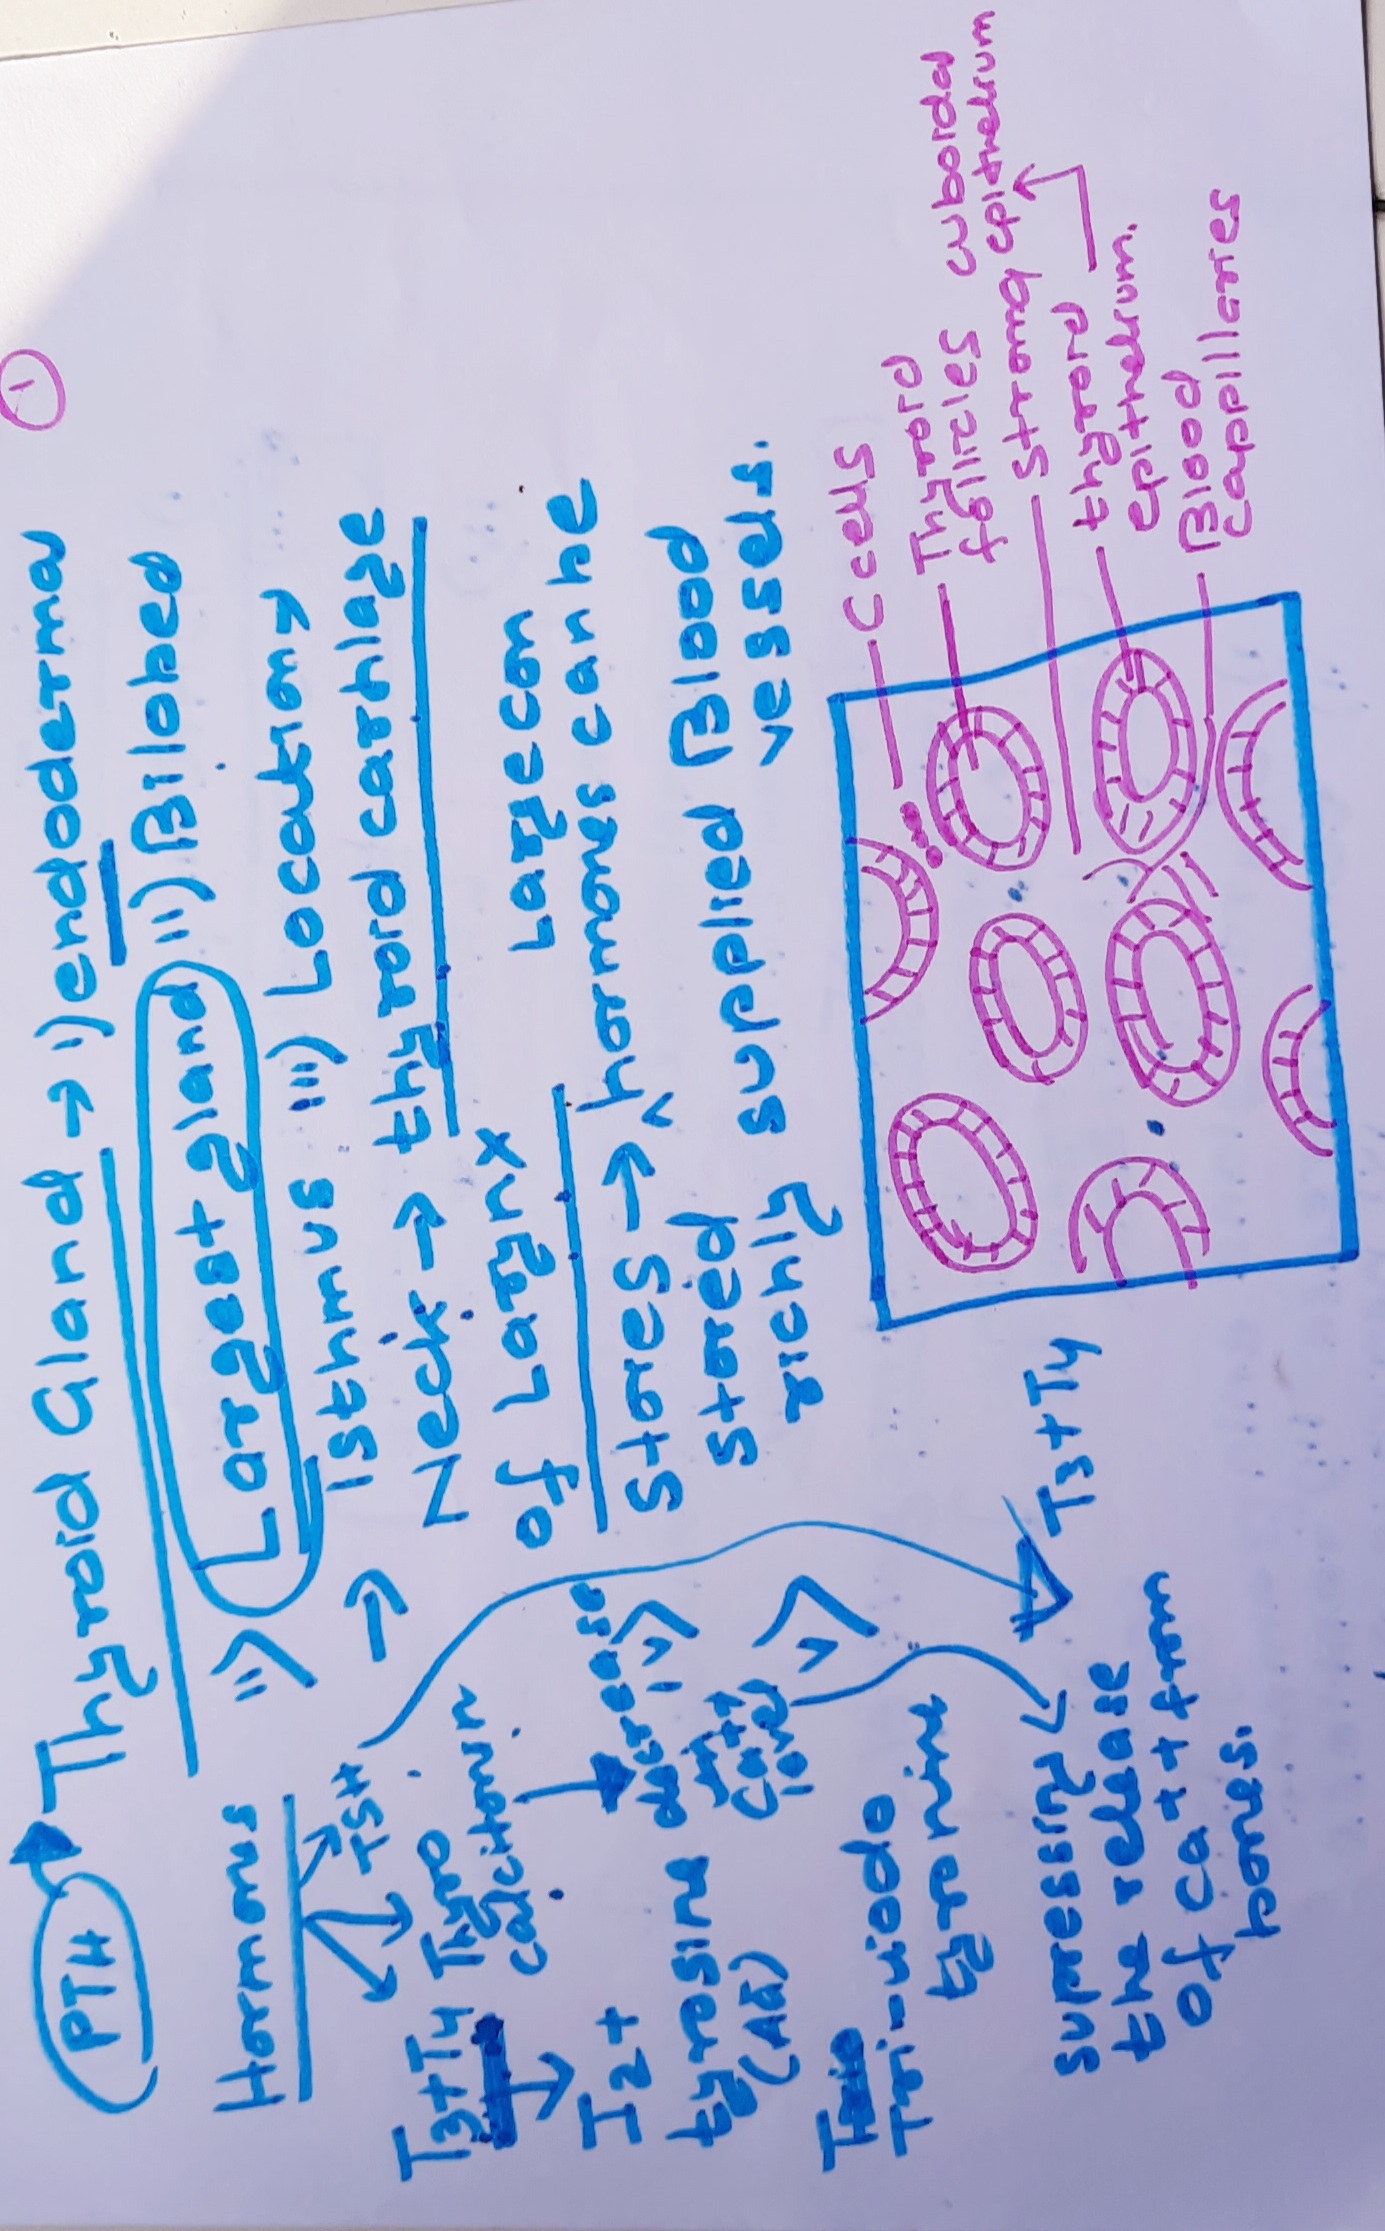 ①
PTH → Thyroid Gland → i) endodermal
ii) Largest gland ii) Bilobed
→ Isthmus iii) Location →
Neck → thyroid cartilage
of Largx
Largecon
Stores → hormones can he
Stored supplied Blood
richly vessels.
Hormones
TSH
T3+T4 Thyro
calcitonin
I2+
tyrosine
(AA)
decrease
iv)
Ca++
ions
v)
Tri-iodo
tyronine
T3+T4
supressing
the release
of Ca++ from
bones.
C cells
Thyroid
follicles cuboidal
Stroma epithelium
thyroid
epithelium.
Blood
capillaries